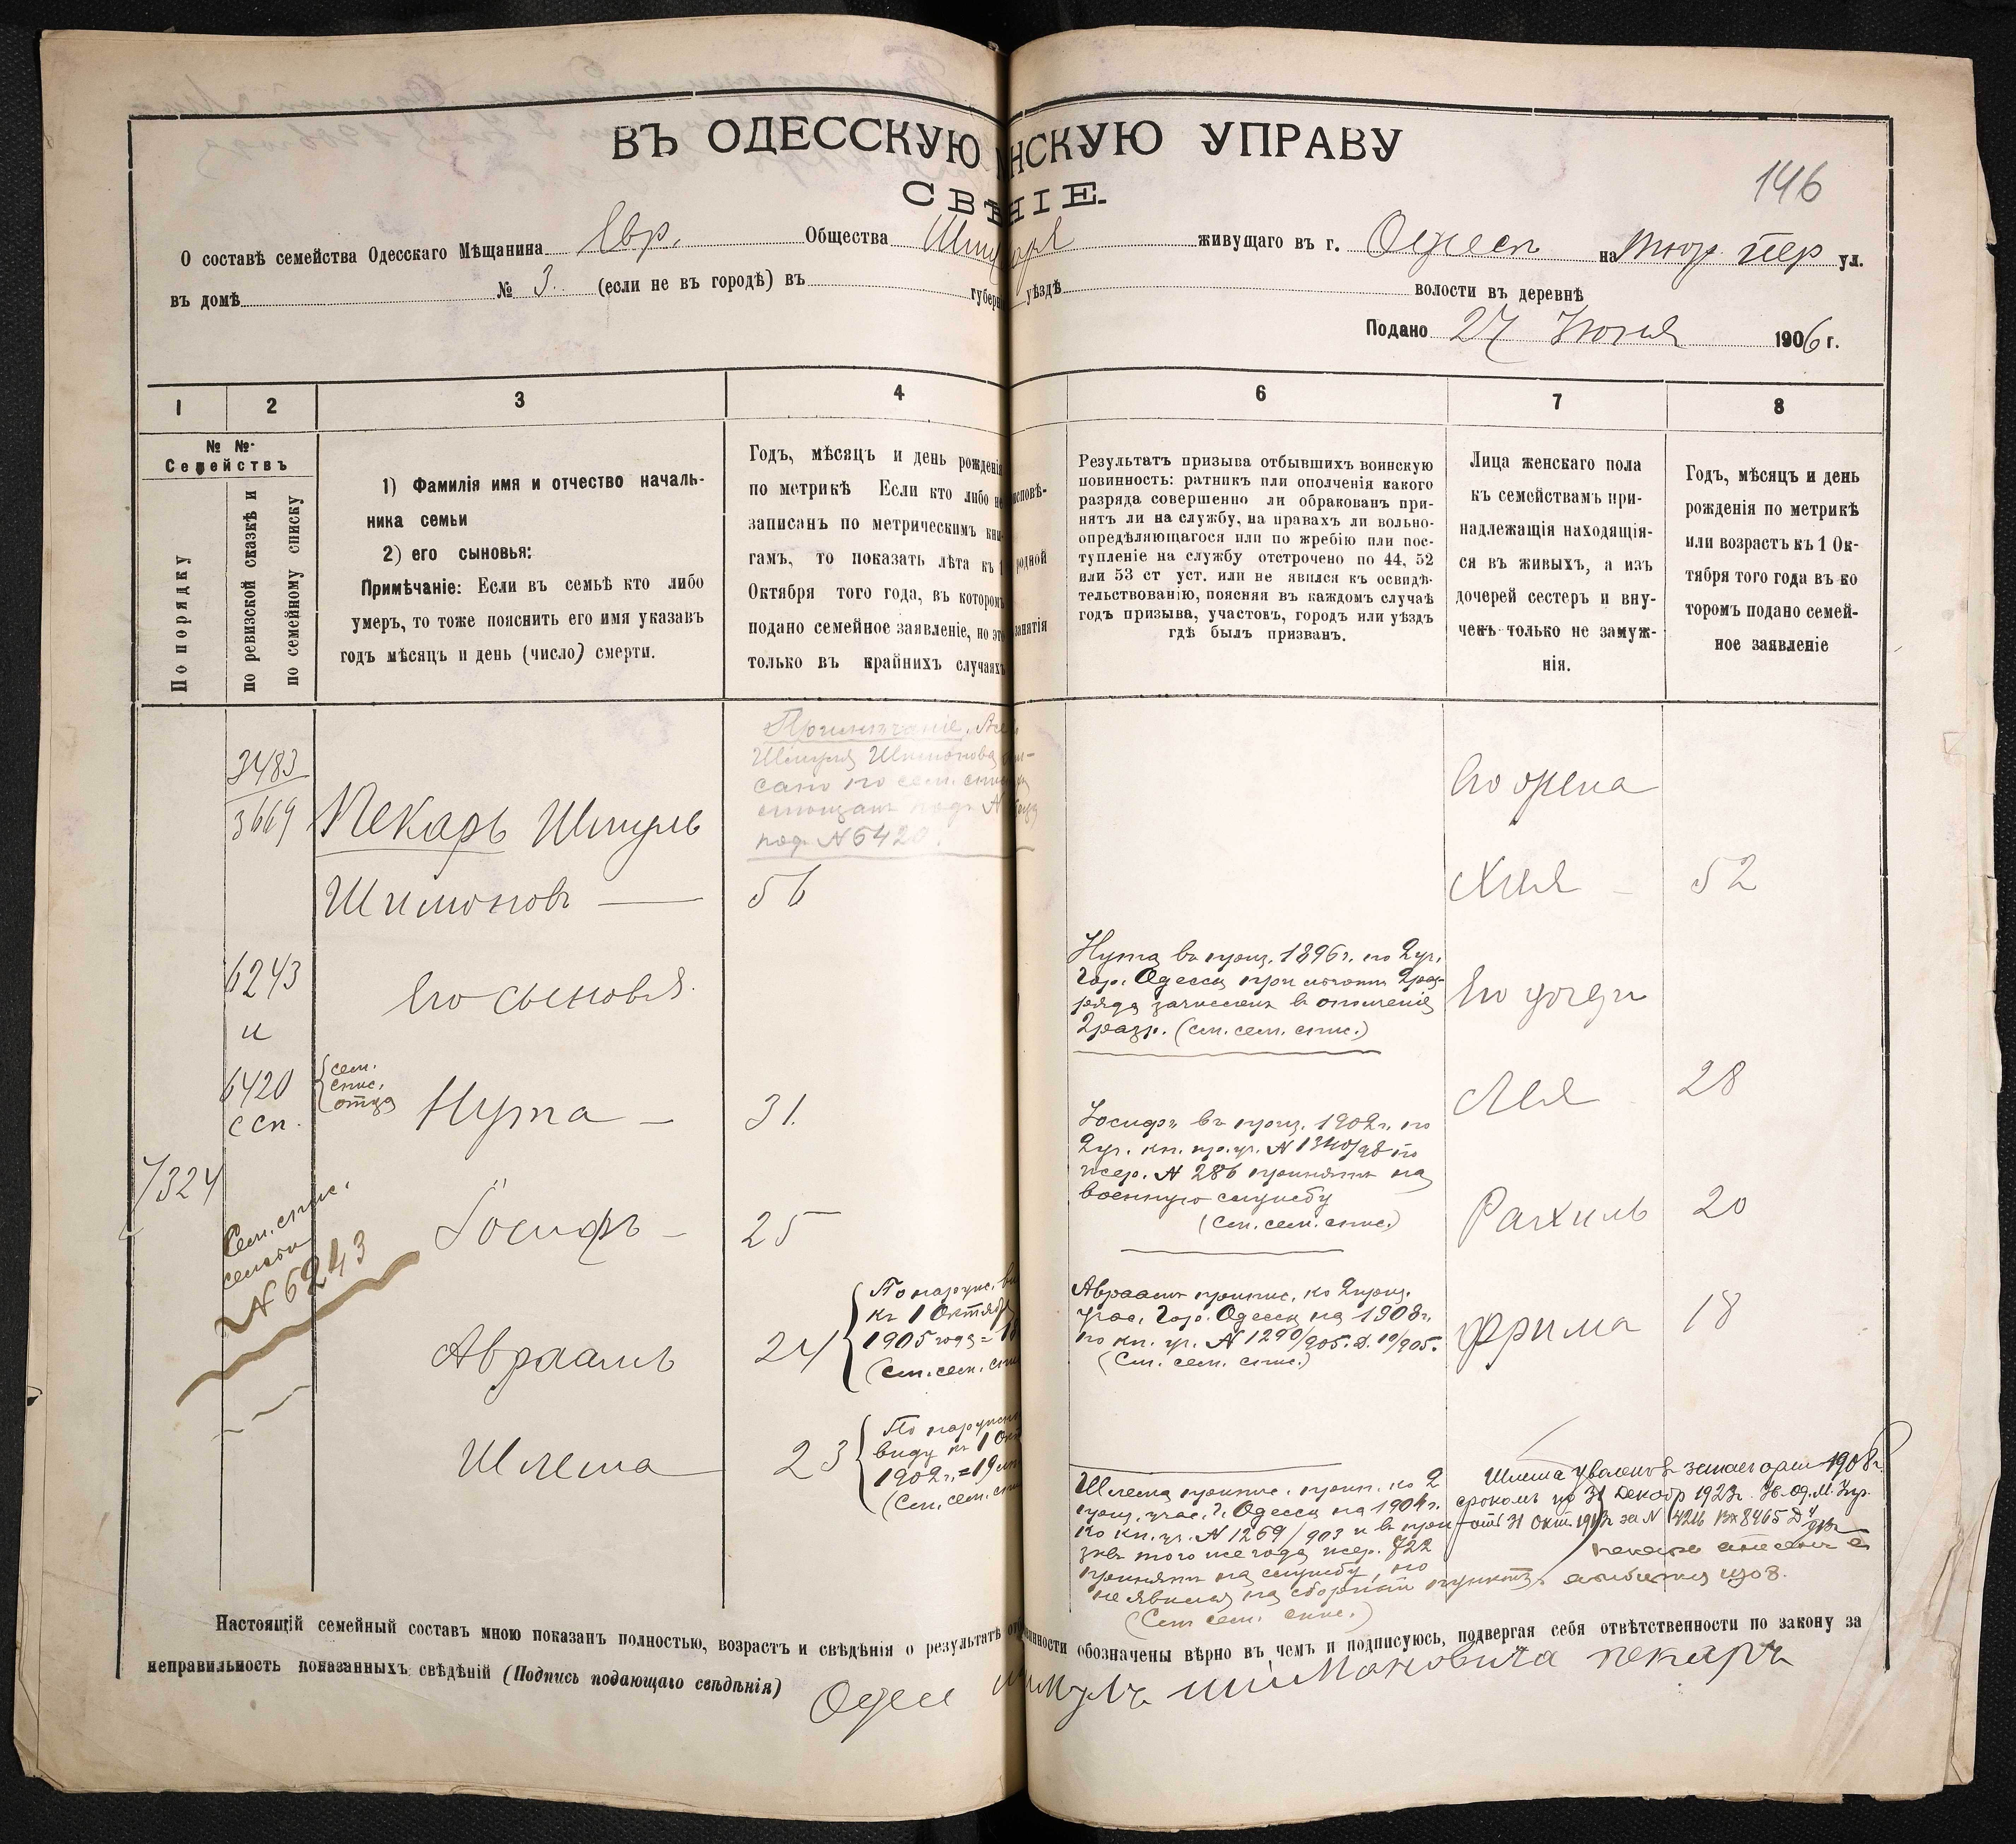 ВЪ ОДЕССКУЮ НСКУЮ УПРАВУ
СВѢ НІЕ.
146
О составѣ семейства Одесскаго Мѣщанина Евр. Общества живущаго въ г. Одессѣ на пер ул.
въ домѣ № 3. (если не въ городѣ) въ губерн уѣздѣ волости въ деревнѣ
Подано 27 Іюня 1906 г.
1 2 3 4 6 7 8
№ №
Семействъ
По порядку
по ревизской сказкѣ и
по семейному списку
1) Фамилія имя и отчество началь-
ника семьи
2) его сыновья:
Примѣчаніе: Если въ семьѣ кто либо
умеръ, то тоже пояснить его имя указавъ
годъ мѣсяцъ и день (число) смерти.
Годъ, мѣсяцъ и день рожденія
по метрикѣ Если кто либо не
записанъ по метрическимъ кни-
гамъ, то показать лѣта къ 1
Октября того года, въ которомъ
подано семейное заявленіе, но это
только въ крайнихъ случаяхъ
исповѣ-
родной
занятія
Результатъ призыва отбывшихъ воинскую
повинность: ратникъ или ополченія какого
разряда совершенно ли обракованъ при-
нятъ ли на службу, на правахъ ли вольно-
опредѣляющагося или по жребію или пос-
тупленіе на службу отстрочено по 44, 52
или 53 ст уст. или не явился къ освидѣ-
тельствованію, поясняя въ каждомъ случаѣ
годъ призыва, участокъ, городъ или уѣздъ
гдѣ былъ призванъ.
Лица женскаго пола
къ семействамъ при-
надлежащія находящія-
ся въ живыхъ, а изъ
дочерей сестеръ и вну-
чекъ только не замуж-
нія.
Годъ, мѣсяцъ и день
рожденія по метрикѣ
или возрастъ къ 1 Ок-
тября того года въ ко
торомъ подано семей-
ное заявленіе
3483
3669
Пекарь Шмуль
Шимоновъ — 56
Примѣчаніе.
Шмуля Шимонова
сано по сем.
подъ N
под N 6420.
Его жена
Хая — 52
6243
и
6420
ссп.
Его сыновья.
сем.
спис.
отца
Нута — 31.
Нута въ приз. 1896 г. по 2 уч.
Гор. Одесса при
зачислен в ополченіе
2 разр. (см. сем. спис.)
Его дочери
Лея 28
7324
Сем. спис.
семьи
N 6243
Іосифъ — 25
Іосифъ въ приз. 1902 г. по
2 уч. кп. пр. уч. N
жер. N 286 принятъ на
военную службу
(см. сем. спис.)
Рахиль 20
Авраамъ 24
По наружн.
къ 1 Октября
1905 года =
(см. сем. спис
Авраамъ припис. ко 2 приз.
учас. Гор. Одесса на 1908 г.
по кн. уч. N 1290/905. Д. 19/905.
(См. сем. спис.)
Фрима 18
Шлема 23
По наружн
виду къ 1 Окт
1902 г. = 19
(См. сем. сп
Шлема припис. ко 2
приз. учас. г. Одесса на 1904 г.
по кн. уч. N 1269/903 и въ при-
зывъ того же года жер. 822
принятъ на службу, но
не явился на сборный пунктъ.
(См сем. спис.)
Шлема уволенъ 1908 г.
срокомъ по 31 Декабр 1923 г.
отъ 31 Окт. за N 4216 Вх 8465
Настоящій семейный составъ мною показанъ полностью, возрастъ и свѣдѣнія о результатѣ от инности обозначены вѣрно въ чемъ и подписуюсь, подвергая себя отвѣтственности по закону за
неправильность показанныхъ свѣдѣній (Подпись подающаго свѣдѣнія)
Шмуль Шимановича Пекаръ